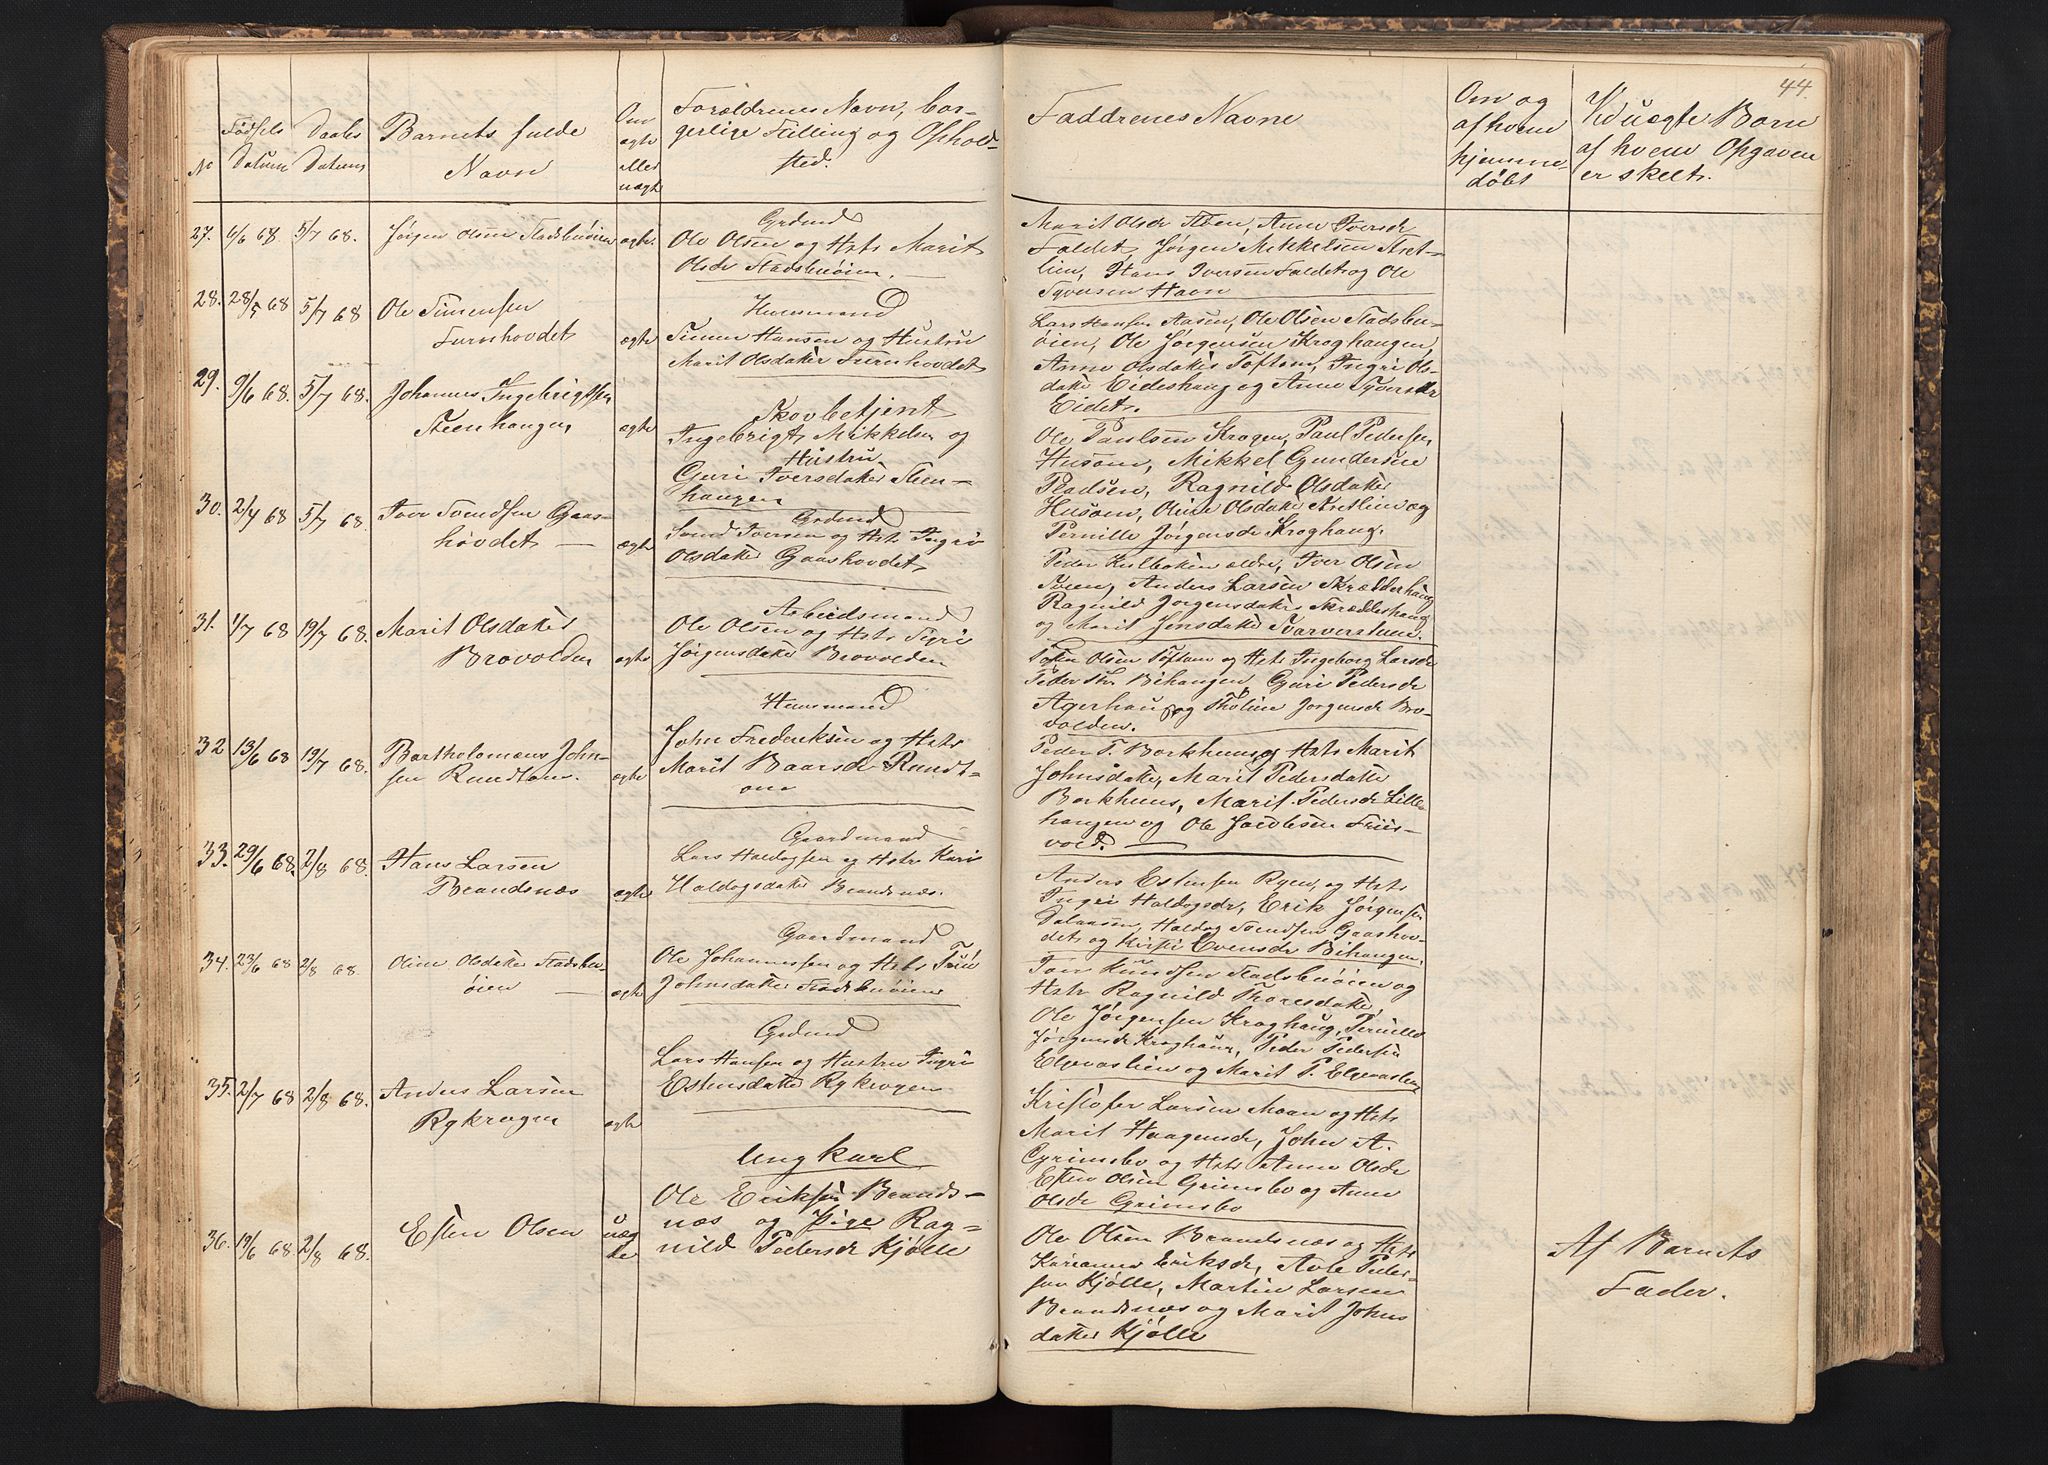 44.
No
Fødsels
Datum
Daabs
Datum
Barnets fulde
Navn
Om
ægte
eller
uægte
Forældrenes Navn, bor-
gerlige Stilling og Ophold-
sted.
Faddrenes Navne
Om og
af hvem
hjemme-
døbt
Ved uægte Børn
af hvem Opgaven
er skelt.
27. 6/6 68 5/7 68. Jørgen Olsen Stadsbuøien ægte.
Grdmd
Ole Olsen og Hstr Marit
Olsdr Stadsbuøien.
Marit Olsdr Steen, Anne Iversdr
Faldet, Jørgen Mikkelsen Aset-
lien, Hans Iversen Faldet og Ole
Syversen Haen
28. 28/5 68 5/7 68 Ole Simensen
Furuhovdet ægte
Huusmand
Simen Hansen og Hustru
Marit Olsdatter Furuhovdet
Lars Hansen Aasen, Ole Olsen Stadsbu-
øien, Ole Jørgensen Kroghaugen,
Anne Olsdatter Toftom, Ingri Ols-
datter Eideshaug og Anne Syversdr
Eidet.
29. 9/6 68. 5/7 68. Johannes Ingebrigtsen
Steenhaugen ægte
Skovbetjent
Ingebrigt Mikkelsen og
Hustru
Guri Iversdatter Steen-
haugen
Ole Paulsen Krogen, Paul Pedersen
Husom, Mikkel Gundersen
Pladsen, Ragnild Olsdatter
Husom, Oline Olsdatter Asetlien og
Pernille Jørgensdr Kroghaug.
30. 2/4 68 5/7 68. Iver Svendsen Gaas-
høvdet ægte
Grdmd
Svend Iversen og Hstr Ingri
Olsdatter Gaashovdet
Peder Kulbækken ældre, Iver Olsen
Moen, Anders Larsen Skrædderhaug
Ragnild Jørgensdatter Skrædderhaug
og Marit Jensdatter Svarverstuen.
31. 1/7 68 19/7 68. Marit Olsdatter
Brovolden ægte
Arbeidsmand
Ole Olsen og Hstr Siri
Jørgensdatter Brovolden
Olsen Toftom og Hstr Ingeborg Larsdr
Peder Bihaugen, Guri Pedersdr
Agerhaug og Tholine Jørgensdr Bro-
volden.
32 13/6 68 19/7 68. Bartholomæus John-
sen Rundtom. ægte
Huusmand
John Frederiksen og Hstr
Marit Baarsdr Rundt-
om
Peder T. Borkhuus og Hstr Marit
Johnsdatter, Marit Pedersdatter
Borkhuus, Marit Pedersdr Lille-
haugen og Ole Jacobsen Friis-
vold.
33. 29/6 68. 2/8 68 Hans Larsen
Brandsnæs ægte
Gaardmand
Lars Haldogsen og Hstr Kari
Haldogsdatter Brandsnæs.
Anders Estensen Ryen og Hstr
Ingri Haldogsdr, Erik Jørgensen
Dalaasen, Haldog Svendsen Gaashov-
det og Kirsti Evensdr Bihaugen.
34. 23/6 68 2/8 68 Oline Olsdatter Stadsbu-
øien ægte
Gaardmand
Ole Johannessen og Hstr Siri
Johnsdatter Stadsbuøien
Tore Knudsen Stadsbuøien og
Hstr Ragnild Thoresdatter,
Ole Jørgensen Kroghaug, Pernille
Jørgensdr Kroghaug, Peder Pedersen
Elgvaslien og Marit P. Elgvaslien
35. 2/7 68 2/8 68. Anders Larsen
Rykrogen ægte
Grdmd
Lars Hansen og Hustru Ingri
Estensdatter Rykrogen
Kristofer Larsen Moan og Hstr
Marit Haagensdr, John A.
Grimsbo og Hstr Anne Olsdr
Esten Olsen Grimsbo og Anne
Olsdr Grimsbo
36. 19/6 68 2/8 68. Esten Olsen uæg
te
Ungkarl
Ole Eriksen Brands-
næs og Pige Rag-
nild Pedersdr Kjølle
Ole Olsen Brandsnæs og Hstr
Karianne Eriksdr, Arle Peder-
sen Kjølle, Martin Larsen
Brandsnæs og Marit Johns
datter Kjølle
Af Barnets
Fader.